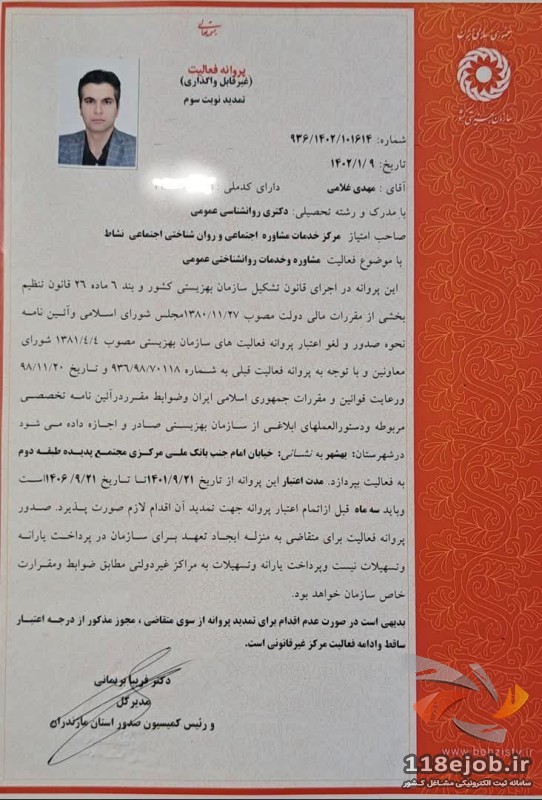 بسمه تعالی
جمهوری اسلامی ایران
سازمان بهزیستی کشور
پروانه فعالیت
(غیرقابل واگذاری)
تمدید نوبت سوم
شماره: ۹۳۶/۱۴۰۲/۱۰۱۶۱۴
تاریخ: ۱۴۰۲/۱/۹
آقای : مهدی غلامی دارای کدملی :
با مدرک و رشته تحصیلی: دکتری روانشناسی عمومی
صاحب امتیاز مرکز خدمات مشاوره اجتماعی و روان شناختی اجتماعی نشاط
با موضوع فعالیت مشاوره وخدمات روانشناختی عمومی
این پروانه در اجرای قانون تشکیل سازمان بهزیستی کشور و بند ۶ ماده ۲۶ قانون تنظیم
بخشی از مقررات مالی دولت مصوب ۱۳۸۰/۱۱/۲۷مجلس شورای اسلامی وآئین نامه
نحوه صدور و لغو اعتبار پروانه فعالیت های سازمان بهزیستی مصوب ۱۳۸۱/۴/۴ شورای
معاونین و با توجه به پروانه فعالیت قبلی به شماره ۹۳۶/۹۸/۷۰۱۱۸ و تاریخ ۹۸/۱۱/۲۰
ورعایت قوانین و مقررات جمهوری اسلامی ایران وضوابط مقرردرآئین نامه تخصصی
مربوطه ودستورالعملهای ابلاغی از سازمان بهزیستی صادر و اجازه داده می شود
درشهرستان: بهشهر به نشانی: خیابان امام جنب بانک ملی مرکزی مجتمع پدیده طبقه دوم
به فعالیت بپردازد. مدت اعتبار این پروانه از تاریخ ۱۴۰۱/۹/۲۱تا تاریخ ۱۴۰۶/۹/۲۱است
وباید سه ماه قبل ازاتمام اعتبار پروانه جهت تمدید آن اقدام لازم صورت پذیرد. صدور
پروانه فعالیت برای متقاضی به منزله ایجاد تعهد برای سازمان در پرداخت یارانه
وتسهیلات نیست وپرداخت یارانه وتسهیلات به مراکز غیردولتی مطابق ضوابط ومقرارت
خاص سازمان خواهد بود.
بدیهی است در صورت عدم اقدام برای تمدید پروانه از سوی متقاضی ، مجوز مذکور از درجه اعتبار
ساقط وادامه فعالیت مرکز غیرقانونی است.
دکتر فریبا بریمانی
مدیرکل
و رئیس کمیسیون صدور استان مازندران
www.behzisty.ir
118ejob.ir
سامانه ثبت الکترونیکی مشاغل کشور